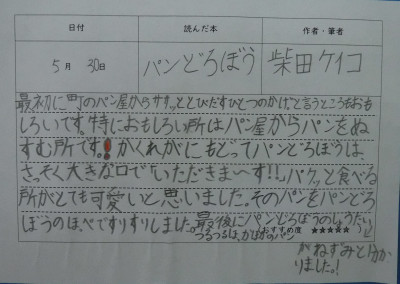 日付 読んだ本 作者・筆者
5月 30日 パンどろぼう 柴田ケイコ
最初に町のパン屋からサササッととびだすひとつのかげ。と言うところもおも
しろいです。特におもしろい所はパン屋からパンをぬ
すむ所です。!かくれがにもどってパンどろぼうは、
さっそく大きな口で「いただきま〜す!!」パクッと食べる
所がとても可愛いと思いました。そのパンをパンどろ
ぼうのほっぺですりすりしました。最後にパンどろぼうのしょうたい
つるつるは、かばかのパン おすすめ度 ★★★★★
がねずみと分か
りました。!